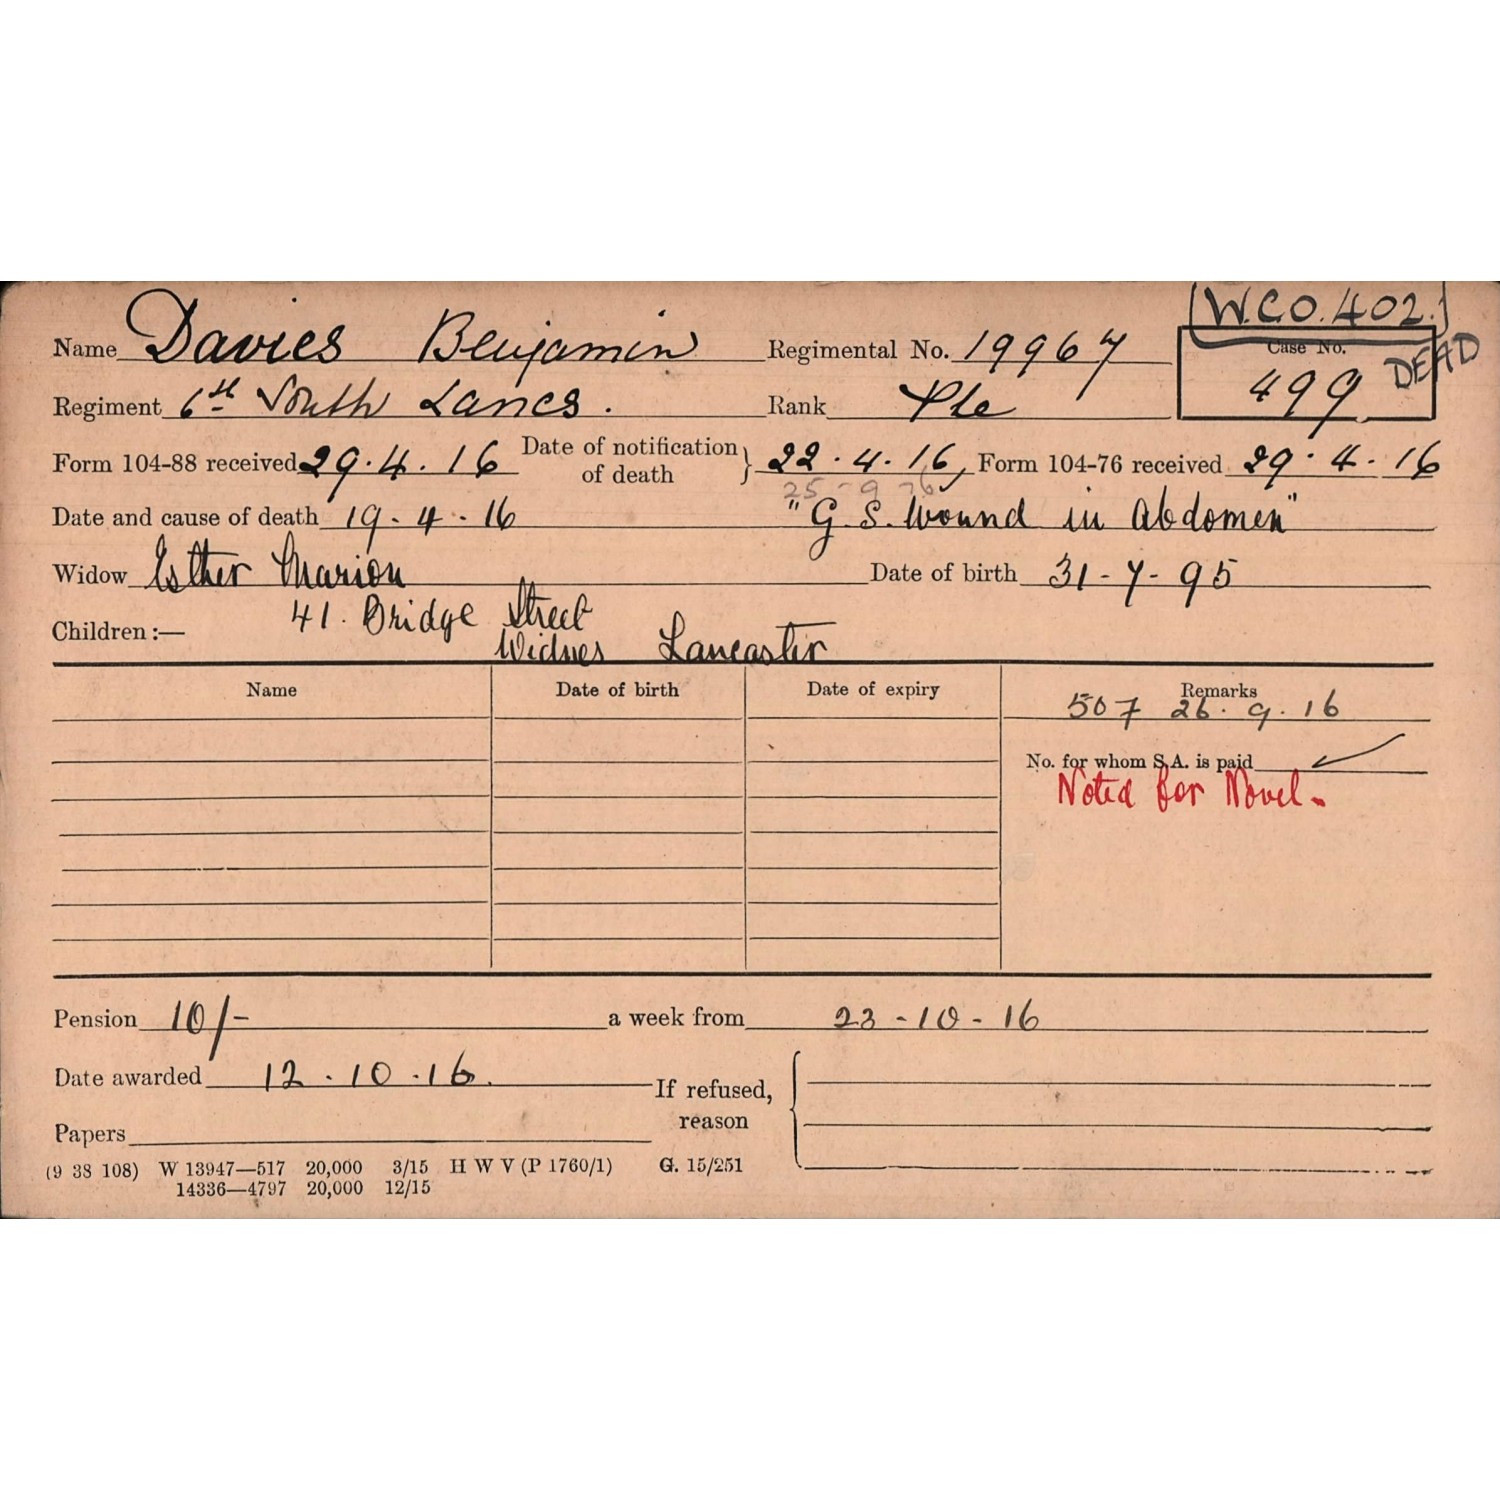 [W.C.O. 402.]
Name Davies Benjamin Regimental No. 19967 Case No. 499 DEAD
Regiment 6th South Lancs. Rank Pte
Form 104-88 received 29.4.16 Date of notification of death } 22.4.16, Form 104-76 received 29.4.16
25-9-16
Date and cause of death 19-4-16 "G.S. Wound in Abdomen"
Widow Esther Marion Date of birth 31-7-95
41. Bridge Street
Children:— Widnes Lancaster
Name Date of birth Date of expiry Remarks
507 26.9.16
No. for whom S.A. is paid
Noted for Novel.
Pension 10/- a week from 23-10-16
Date awarded 12.10.16. If refused,
reason
Papers
(9 38 108) W 13947—517 20,000 3/15 H W V (P 1760/1) G. 15/251
14336—4797 20,000 12/15